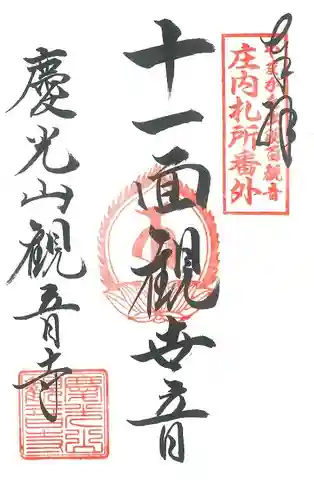 奉拝
庄内札所番外
十一面観世音
慶光山観音寺